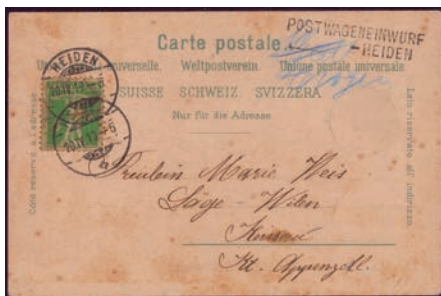 POSTWAGENEINWURF
-HEIDEN
Carte postale.
Union postale universelle. Weltpostverein. Unione postale universale.
SUISSE SCHWEIZ SVIZZERA
Nur für die Adresse
Côté réservé à l'adresse.
Lato riservato all'indirizzo.
HEIDEN
Fräulein Marie Weis
Säge-Wilen
Kt. Appenzell.